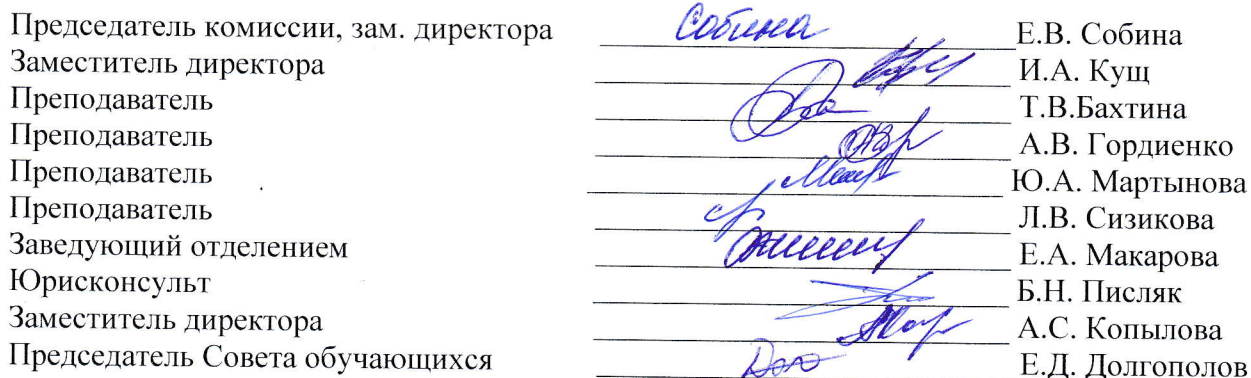 Председатель комиссии, зам. директора Собина Е.В. Собина
Заместитель директора И.А. Кущ
Преподаватель Т.В.Бахтина
Преподаватель А.В. Гордиенко
Преподаватель Ю.А. Мартынова
Преподаватель Л.В. Сизикова
Заведующий отделением Е.А. Макарова
Юрисконсульт Б.Н. Писляк
Заместитель директора А.С. Копылова
Председатель Совета обучающихся Е.Д. Долгополов